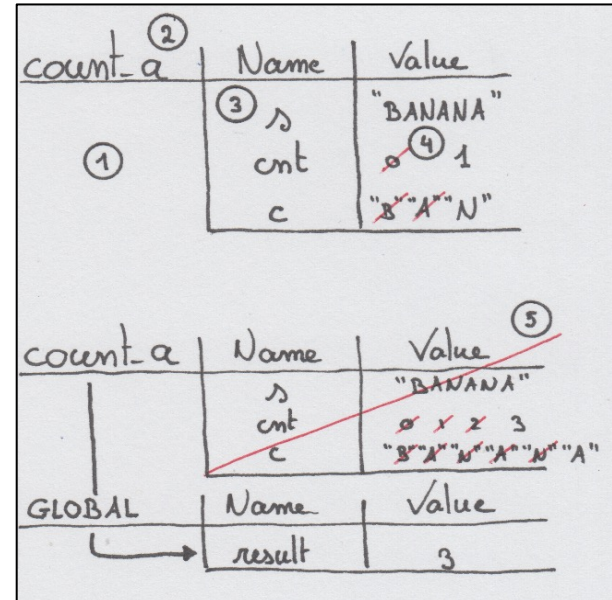 ②
count_a Name Value
③ s "BANANA"
① cnt 0 ④ 1
c "B" "A" "N"
⑤
count_a Name Value
s "BANANA"
cnt 0 1 2 3
c "B" "A" "N" "A" "N" "A"
GLOBAL Name Value
result 3